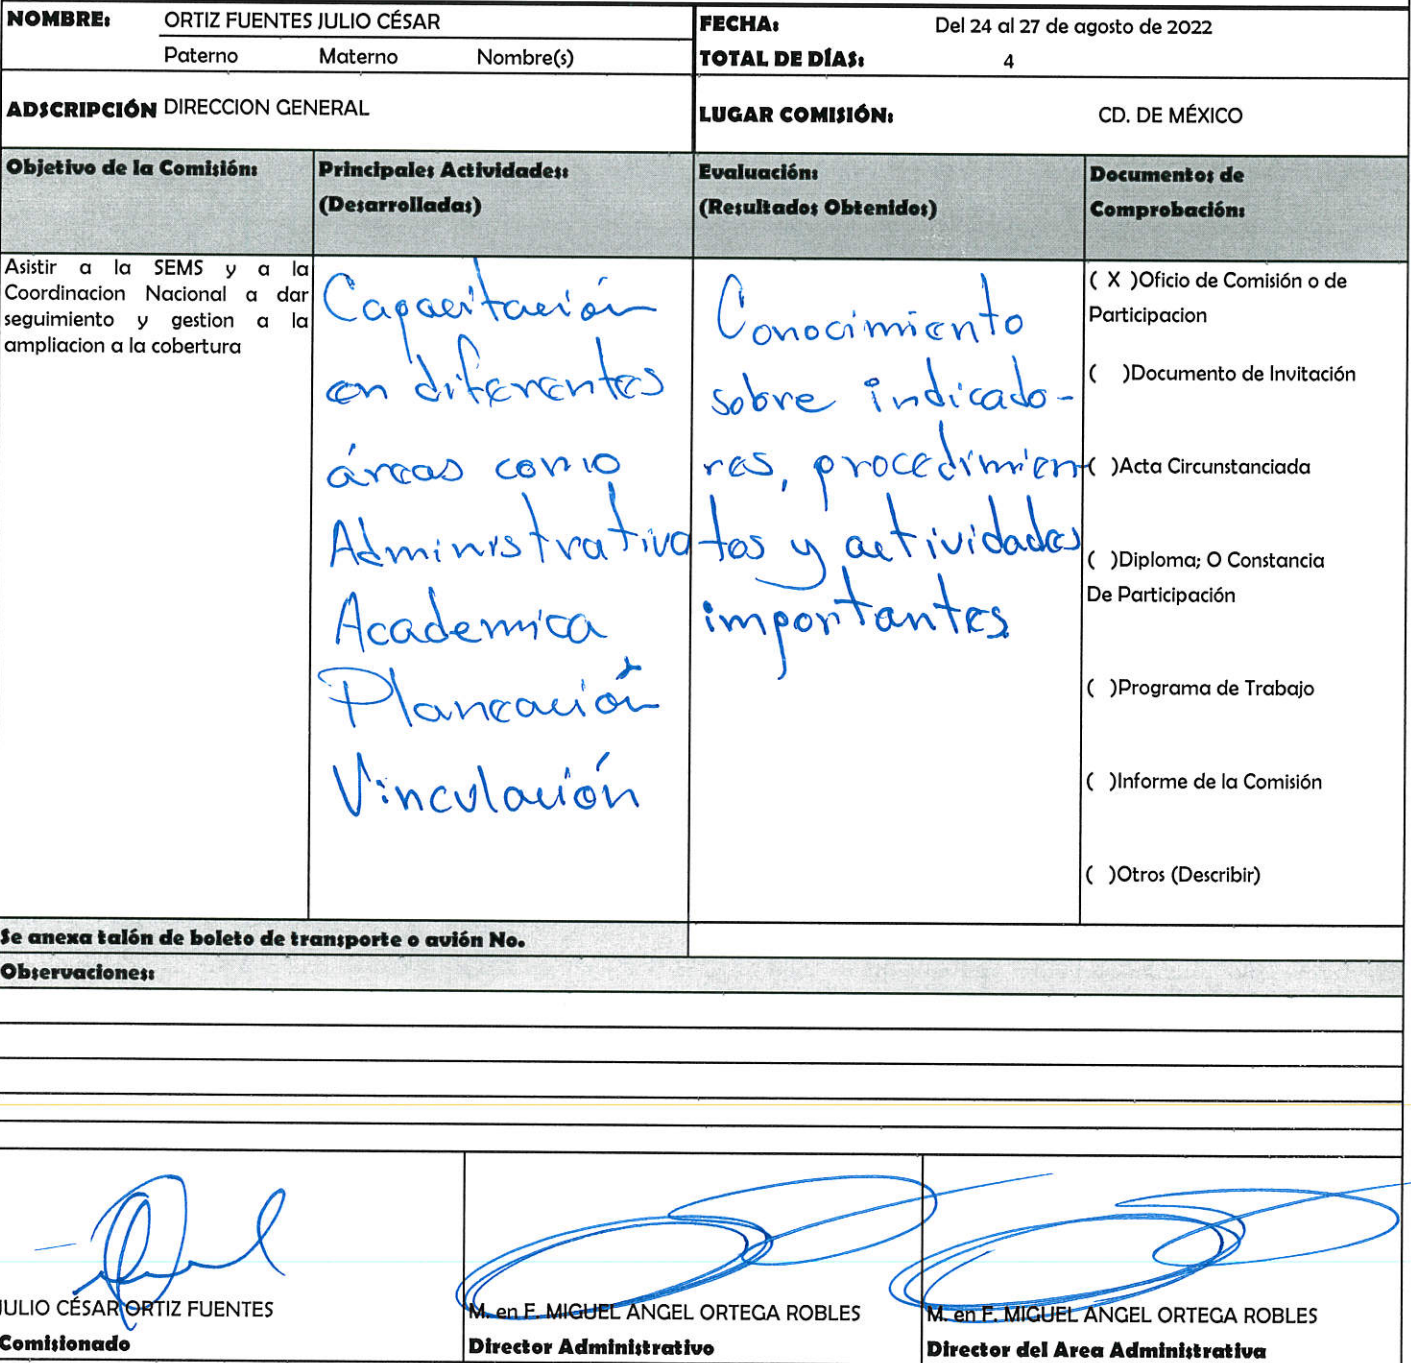 NOMBRE: ORTIZ FUENTES JULIO CÉSAR
Paterno Materno Nombre(s)
FECHA: Del 24 al 27 de agosto de 2022
TOTAL DE DÍAS: 4
ADSCRIPCIÓN DIRECCION GENERAL
LUGAR COMISIÓN: CD. DE MÉXICO
Objetivo de la Comisión:
Principales Actividades:
(Desarrolladas)
Evaluación:
(Resultados Obtenidos)
Documentos de
Comprobación:
Asistir a la SEMS y a la
Coordinacion Nacional a dar
seguimiento y gestion a la
ampliacion a la cobertura
Capacitación
en diferentes
áreas como
Administrativa
Academica
Planeación
Vinculación
Conocimiento
sobre indicado-
res, procedimien
tos y actividades
importantes
( X )Oficio de Comisión o de
Participacion
( )Documento de Invitación
( )Acta Circunstanciada
( )Diploma; O Constancia
De Participación
( )Programa de Trabajo
( )Informe de la Comisión
( )Otros (Describir)
Se anexa talón de boleto de transporte o avión No.
Observaciones:
JULIO CÉSAR ORTIZ FUENTES
Comisionado
M. en F. MIGUEL ANGEL ORTEGA ROBLES
Director Administrativo
M. en F. MIGUEL ANGEL ORTEGA ROBLES
Director del Area Administrativa